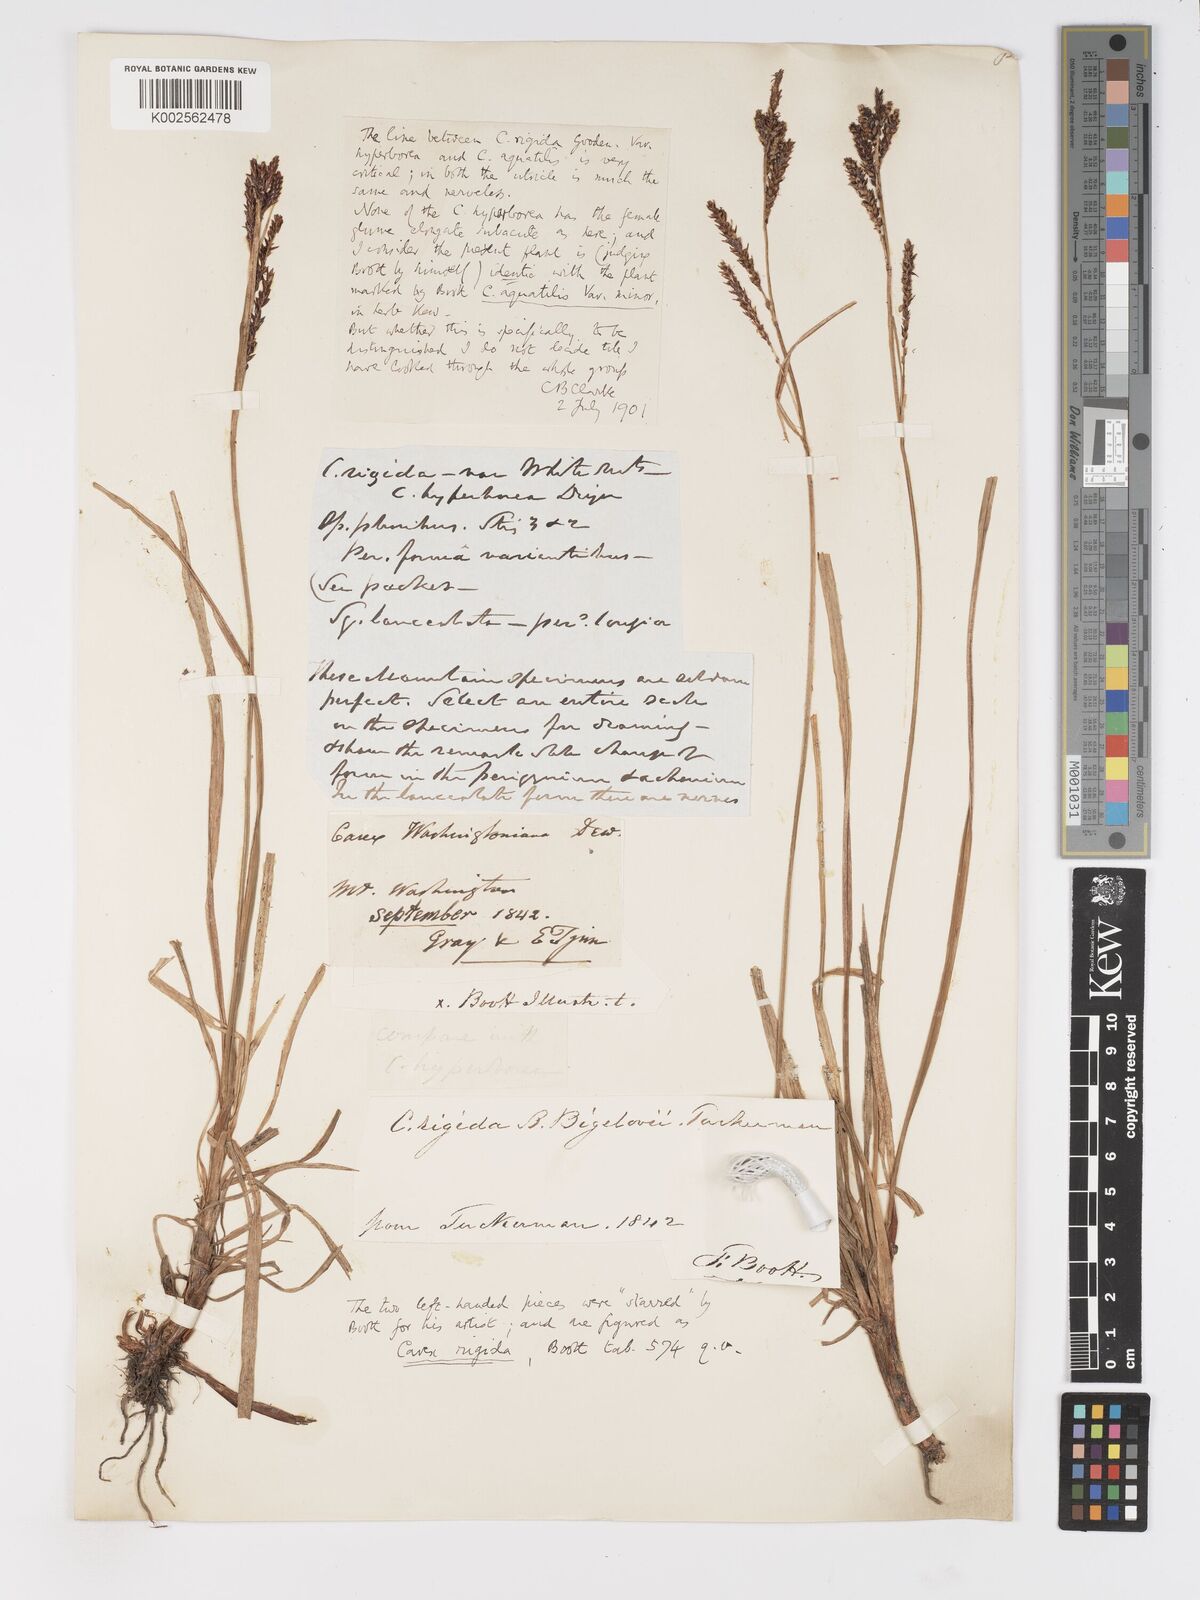 ROYAL BOTANIC GARDENS KEW
K002562478
The line between C. rigida Gooden. Var.
hyperborea and C. aquatilis is very
critical; in both the utricle is much the
same and nerveless.
None of the C. hyperborea has the female
glume elongate subacute as here; and
I consider the present plant is (judging
Boott by himself) identic with the plant
marked by Boott C. aquatilis Var. minor,
in herb Kew.
But whether this is specifically to be
distinguished I do not decide till I
have looked through the whole group
CBClarke
2 July 1901
C. rigida - var White Mts -
C. hyperborea Drejer
Sp. pluribus. Stig 3 & 2
Per. formâ variantibus -
(See packet -
Sq. lanceolata - per. longior
These Mountain specimens are seldom
perfect. Select an entire scale
on the specimens for drawing -
& show the remarkable change of
form in the perigynium & achenium
In the lanceolate form there are nerves
Carex Washingtoniana Dew.
Mt. Washington
September 1842.
Gray &
x. Boott Illustr. t.
compare with
C. hyperborea
C. rigida B. Bigelovii. Tuckerman
from Tuckerman. 1842
F. Boott.
The two left-handed pieces were "starred" by
Boott for his artist; and are figured as
Carex rigida, Boott tab. 574 q.v.
inches
Don Williams
M001031
Royal Botanic Gardens
Kew
copyright reserved
0 1 2 3 4 5 6 7 8 9 10
cm